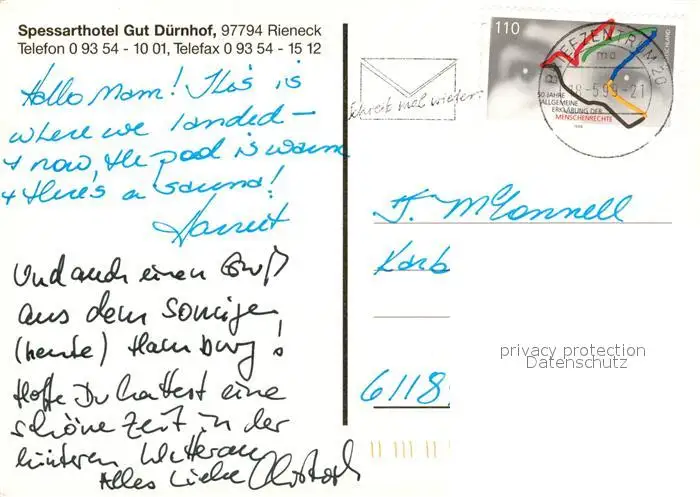 Spessarthotel Gut Dürnhof, 97794 Rieneck
Telefon 0 93 54 - 10 01, Telefax 0 93 54 - 15 12
Hallo Mam! This is
where we landed –
+ now, the pool is warm
+ there's a sauna!
Harriet
Und auch einen Gruß
aus dem sonnigen
(heute) Hamburg!
Hoffe Du hattest eine
schöne Zeit in der
hinteren Wetterau
Alles Liebe Christoph
110
DEUTSCHLAND
50 JAHRE
ALLGEMEINE
ERKLÄRUNG DER
MENSCHENRECHTE
1998
BRIEFZENTRUM 20
18-5.99-21
Schreib mal wieder
J. McConnell
Karb
6118
privacy protection
Datenschutz